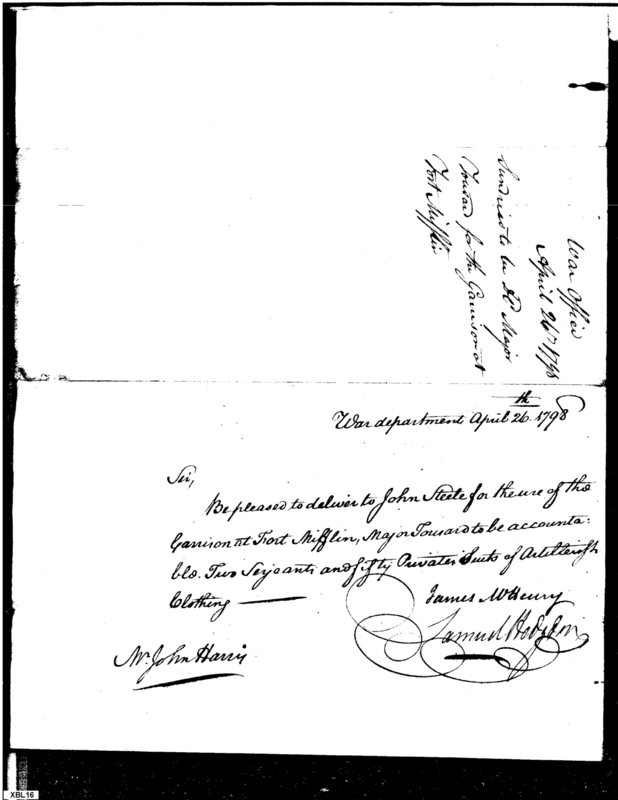 War Office
April 26th 1798
Sundries to be dd Major
Tousard for the Garrison at
Fort Mifflin
War department April 26th 1798
Sir,
Be pleased to deliver to John Steele for the use of the
Garrison at Fort Mifflin, Major Tousard to be accounta:
ble. Two Serjeants and fifty Privates Suits of Artillerists
Clothing
James McHenry
Samuel Hodgdon
Mr. John Harris
XBL16